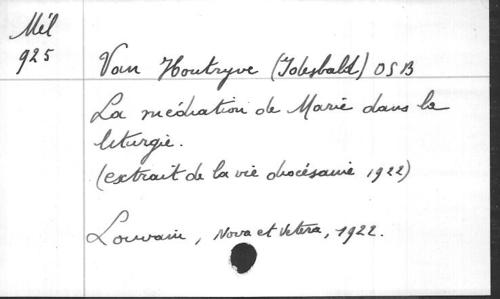 Mél
925
Van Houtryve (Idesbald) OSB
La médiation de Marie dans la
liturgie.
(extrait de la vie diocésaine 1922)
Louvain, Nova et Vetera, 1922.